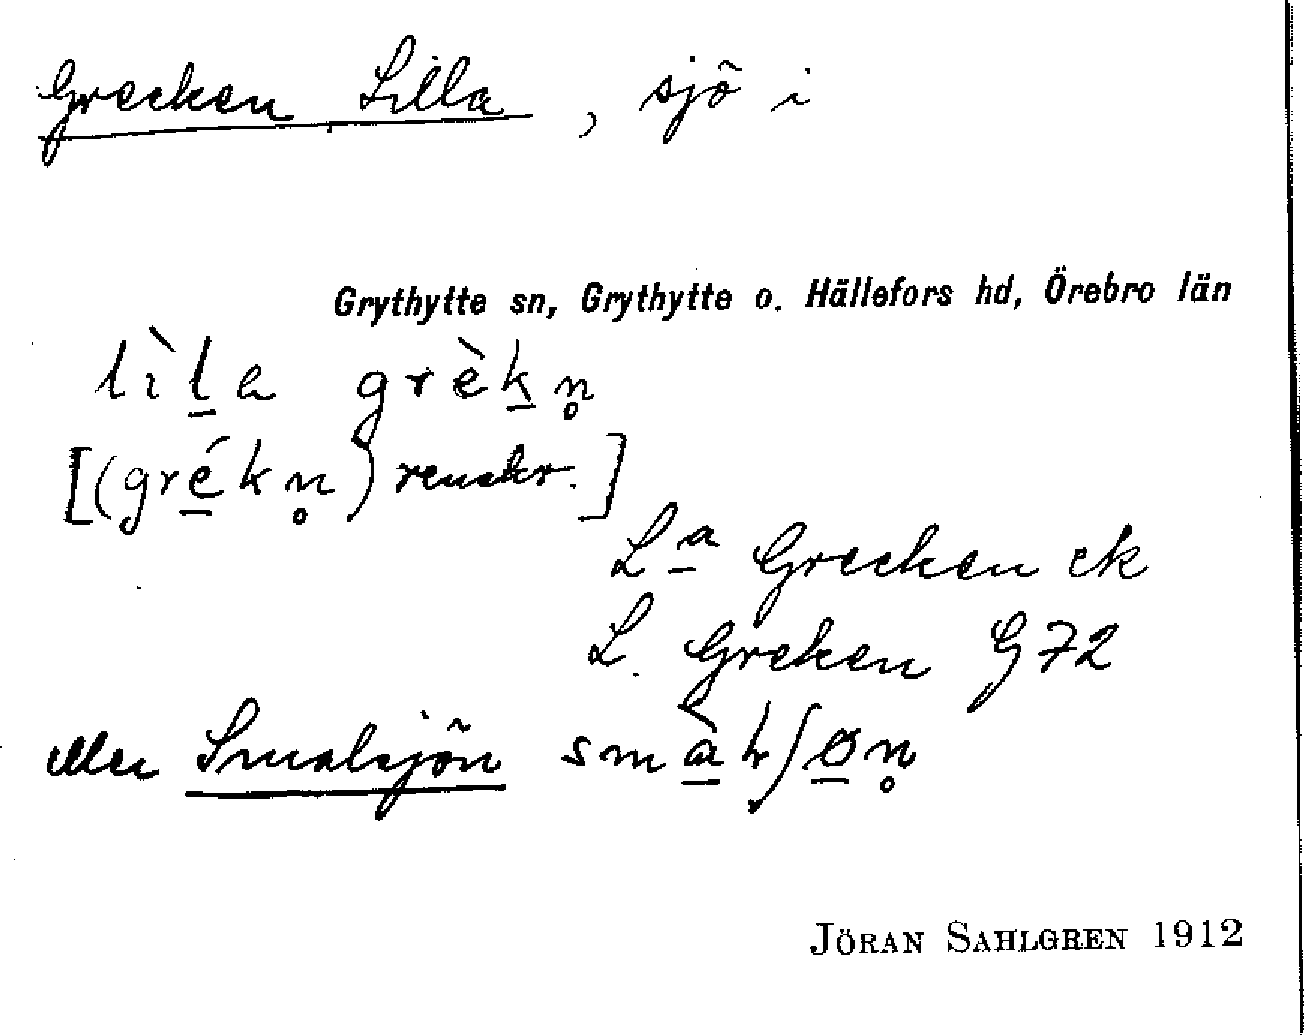 Grecken Lilla, sjö i
Grythytte sn, Grythytte o. Hällefors hd, Örebro län
lìl̲a grèk̲n̥
[(gré̲kn̥) renskr.]
L<u>a</u> Grecken ek
L. Greken G 72
eller Smalsjön
JÖRAN SAHLGREN 1912